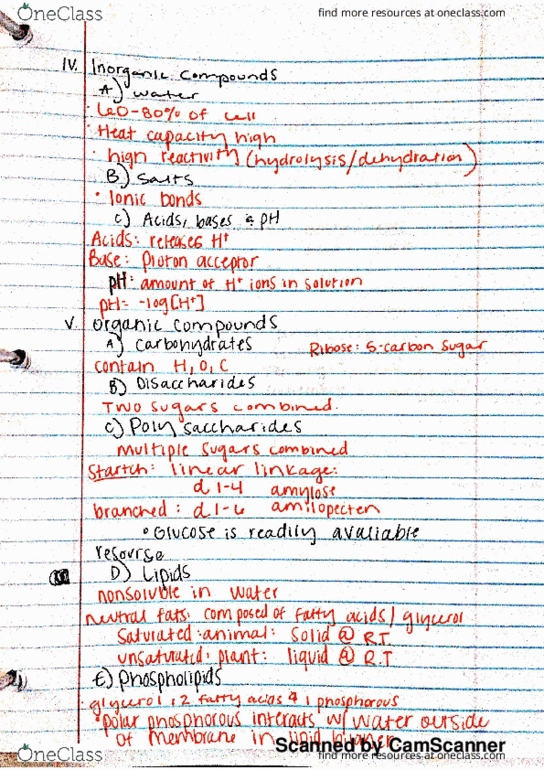 OneClass
find more resources at oneclass.com
IV. Inorganic compounds
A) water
60-80% of cell
• Heat capacity high
• high reactivity (hydrolysis/dehydration)
B) Salts
• Ionic bonds
C) Acids, bases & pH
Acids: releases H+
Base: proton acceptor
pH: amount of H+ ions in solution
pH= -log[H+]
V. organic compounds
A) Carbohydrates
Ribose: 5-carbon sugar
contain H, O, C
B) Disaccharides
Two sugars combined.
C) Poly saccharides
multiple sugars combined
Startch: linear linkage:
α 1-4 amylose
branched: α 1-6 amilopecten
• Glucose is readily avaliable
resourse
D) Lipids
nonsoluble in water
neutral fats: composed of fatty acids/glycerol
Saturated: animal: solid @ R.T.
unsaturated: plant: liquid @ R.T
E) Phospholipids
• glycerol, 2 fatty acids & 1 phosphorous
• polar phosphorous interacts w/ water outside
of membrane in lipid
Scanned by CamScanner
OneClass
find more resources at oneclass.com